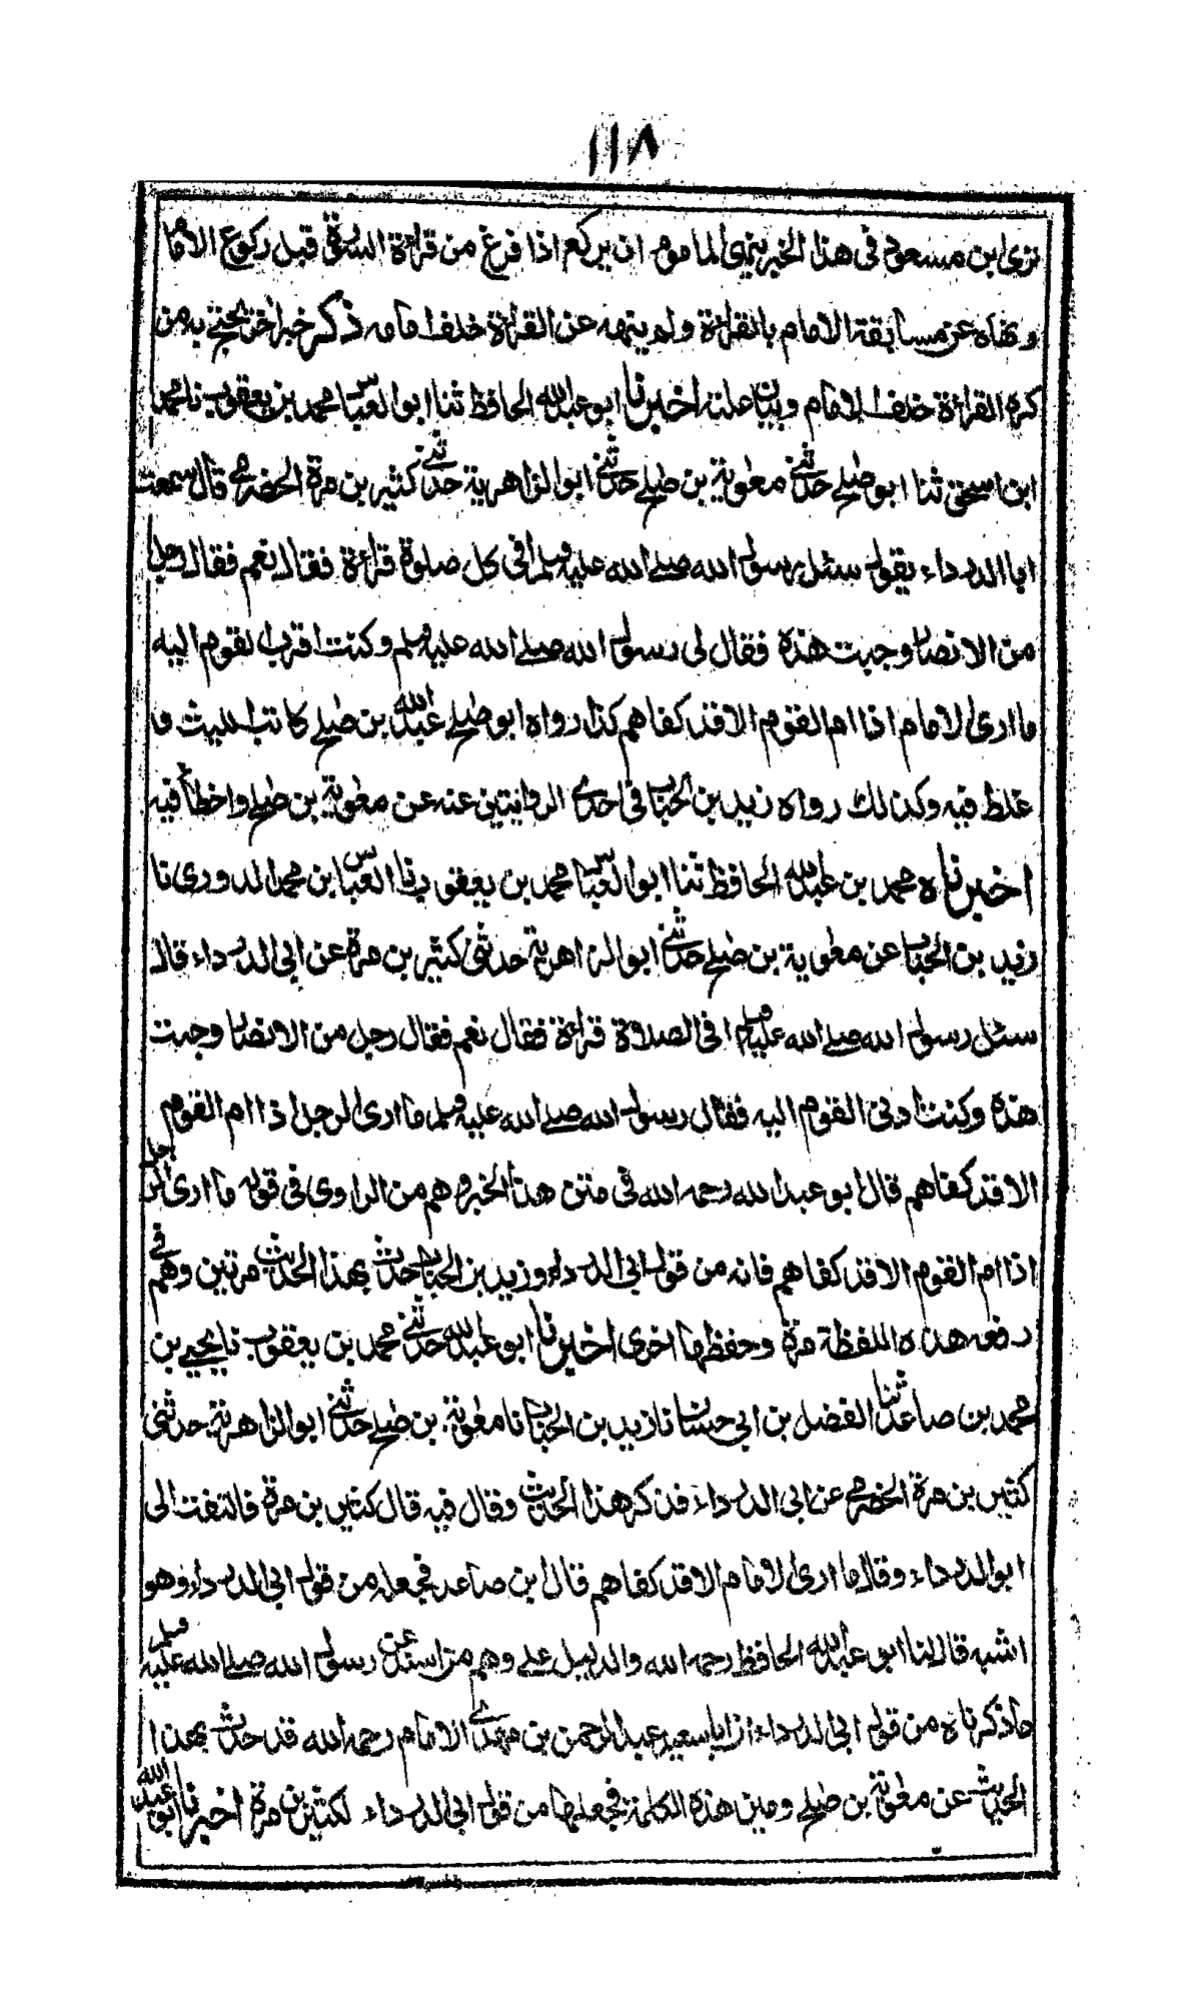 ١١٨
ترى ابن مسعود في هذا الخبر ينهى المأموم ان يركع اذا فرغ من قراءة السورة قبل ركوع الامام
ونهاه عن مسابقة الامام بالقراءة ولم ينهه عن القراءة خلف امامه ذكر خبر اخر يحتج به من
كره القراءة خلف الامام وبيان علته اخبرنا ابو عبد الله الحافظ ثنا ابو العباس محمد بن يعقوب نا محمد
ابن اسحق ثنا ابو صلح حدثني معوية بن صلح حدثني ابو الزاهرية حدثني كثير بن مرة الحضرمي قال سمعت
ابا الدرداء يقول سئل رسول الله صلى الله عليه وسلم افي كل صلوة قراءة فقال نعم فقال رجل
من الانصار وجبت هذه فقال لي رسول الله صلى الله عليه وسلم وكنت اقرب القوم اليه
ما ارى الامام اذا ام القوم الا قد كفاهم كذا رواه ابو صلح عبد الله بن صلح كاتب الليث و
غلط فيه وكذلك رواه زيد بن الحباب في احدى الروايتين عنه عن معوية بن صلح واخطأ فيه
اخبرناه محمد بن عبد الله الحافظ ثنا ابو العباس محمد بن يعقوب نا العباس ابن محمد الدوري نا
زيد بن الحباب عن معوية بن صلح حدثني ابو الزاهرية حدثني كثير بن مرة عن ابي الدرداء قال
سئل رسول الله صلى الله عليه وسلم افي الصلاة قراءة فقال نعم فقال رجل من الانصار وجبت
هذه وكنت ادنى القوم اليه فقال رسول الله صلى الله عليه وسلم ما ارى الرجل اذا ام القوم
الا قد كفاهم قال ابو عبد الله رحمه الله في متن هذا الخبر وهم من الراوي في قوله ما ارى الرجل
اذا ام القوم الا قد كفاهم فانه من قول ابي الدرداء وزيد بن الحباب حدث بهذا الحديث مرتين وهم في
رفعه هذه اللفظة مرة وحفظها اخرى اخبرنا ابو عبد الله حدثني محمد بن يعقوب نا يحيى بن
محمد بن صاعد ثنا الفضل بن ابي حسان نا زيد بن الحباب نا معوية بن صلح حدثني ابو الزاهرية حدثني
كثير بن مرة الحضرمي عن ابي الدرداء فذكر هذا الحديث وقال فيه قال كثير بن مرة فالتفت الي
ابو الدرداء وقال ما ارى الامام الا قد كفاهم قال ابن صاعد فجعله من قول ابي الدرداء وهو
اشبه قال لنا ابو عبد الله الحافظ رحمه الله والدليل على وهم من اسنده عن رسول الله صلى الله عليه وسلم
ما ذكرناه من قول ابي الدرداء ان ابا سعيد عبد الرحمن بن مهدي الامام رحمه الله قد حدث بهذا ا
الحديث عن معوية بن صلح وميز هذه الكلمة فجعلها من قول ابي الدرداء لكثير بن مرة اخبرنا ابو عبد الله